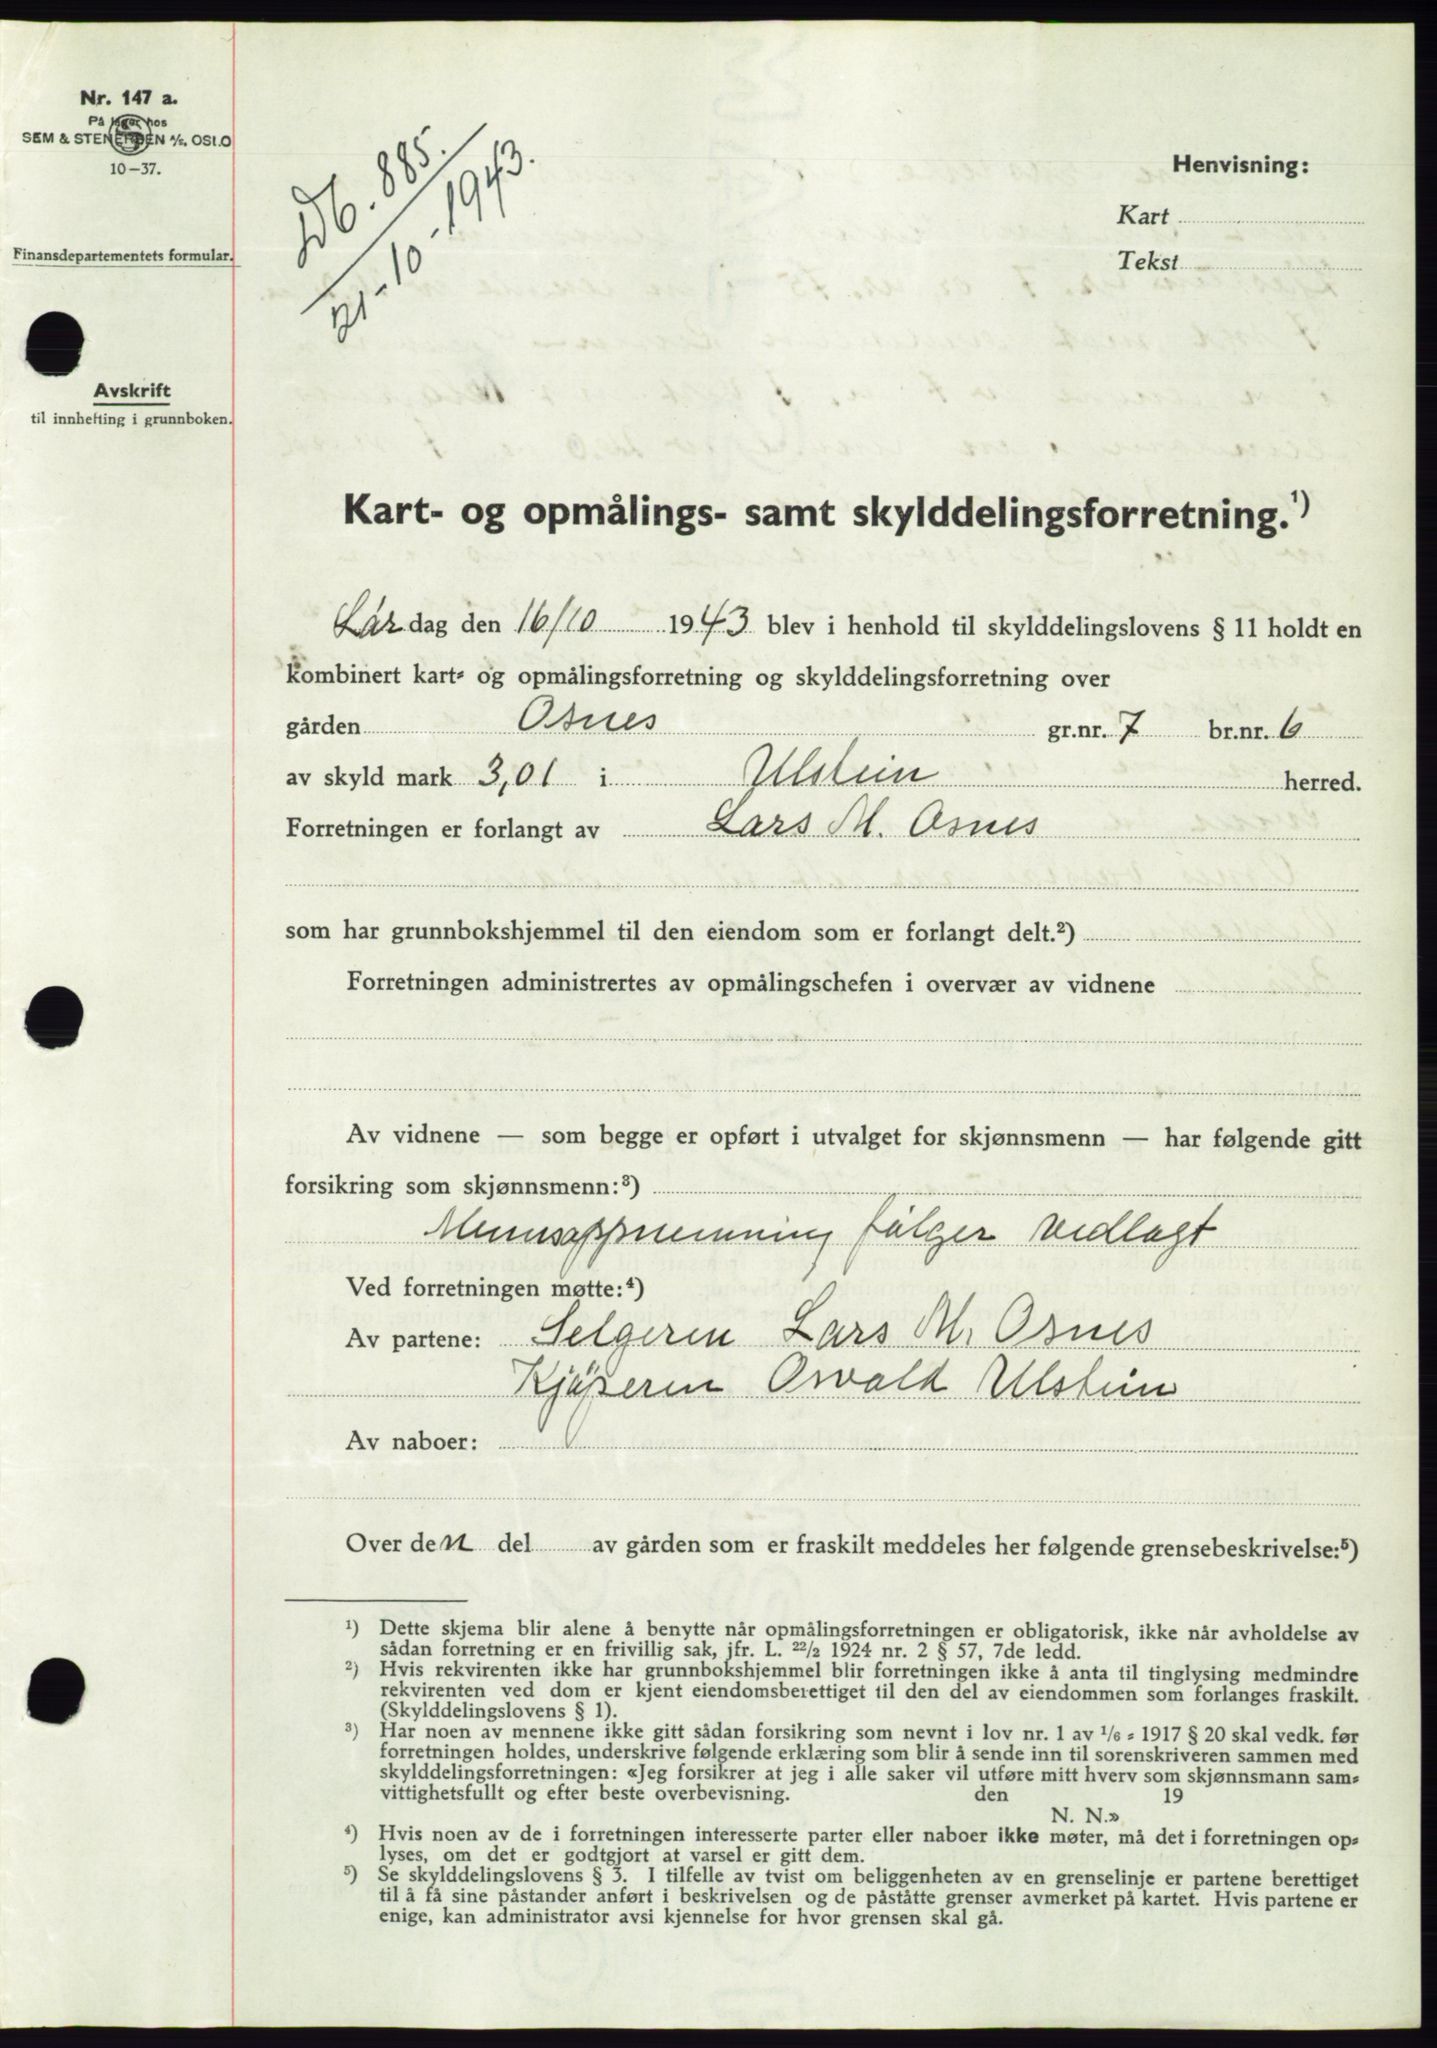 Nr. 147 a.
På lager hos
SEM & STENERSEN A/S, OSLO
10–37.
Finansdepartementets formular.
Avskrift
til innhefting i grunnboken.
Db. 885.
21-10-1943.
Henvisning:
Kart
Tekst
Kart- og opmålings- samt skylddelingsforretning.¹)
Lördag den 16/10 1943 blev i henhold til skylddelingslovens § 11 holdt en
kombinert kart- og opmålingsforretning og skylddelingsforretning over
gården Osnes gr.nr. 7 br.nr. 6
av skyld mark 3,01 i Ulstein herred.
Forretningen er forlangt av Lars M. Osnes
som har grunnbokshjemmel til den eiendom som er forlangt delt.²)
Forretningen administrertes av opmålingschefen i overvær av vidnene
Av vidnene — som begge er opført i utvalget for skjønnsmenn — har følgende gitt
forsikring som skjønnsmenn:³)
Mennsoppnemning fölger vedlagt
Ved forretningen møtte:⁴)
Av partene: Selgeren Lars M. Osnes
Kjöperen Osvald Ulstein
Av naboer:
Over den del av gården som er fraskilt meddeles her følgende grensebeskrivelse:⁵)
¹) Dette skjema blir alene å benytte når opmålingsforretningen er obligatorisk, ikke når avholdelse av
sådan forretning er en frivillig sak, jfr. L. 22/2 1924 nr. 2 § 57, 7de ledd.
²) Hvis rekvirenten ikke har grunnbokshjemmel blir forretningen ikke å anta til tinglysing medmindre
rekvirenten ved dom er kjent eiendomsberettiget til den del av eiendommen som forlanges fraskilt.
(Skylddelingslovens § 1).
³) Har noen av mennene ikke gitt sådan forsikring som nevnt i lov nr. 1 av 1/6 - 1917 § 20 skal vedk. før
forretningen holdes, underskrive følgende erklæring som blir å sende inn til sorenskriveren sammen med
skylddelingsforretningen: «Jeg forsikrer at jeg i alle saker vil utføre mitt hverv som skjønnsmann sam-
vittighetsfullt og efter beste overbevisning. den 19
N. N.»
⁴) Hvis noen av de i forretningen interesserte parter eller naboer ikke møter, må det i forretningen op-
lyses, om det er godtgjort at varsel er gitt dem.
⁵) Se skylddelingslovens § 3. I tilfelle av tvist om beliggenheten av en grenselinje er partene berettiget
til å få sine påstander anført i beskrivelsen og de påståtte grenser avmerket på kartet. Hvis partene er
enige, kan administrator avsi kjennelse for hvor grensen skal gå.